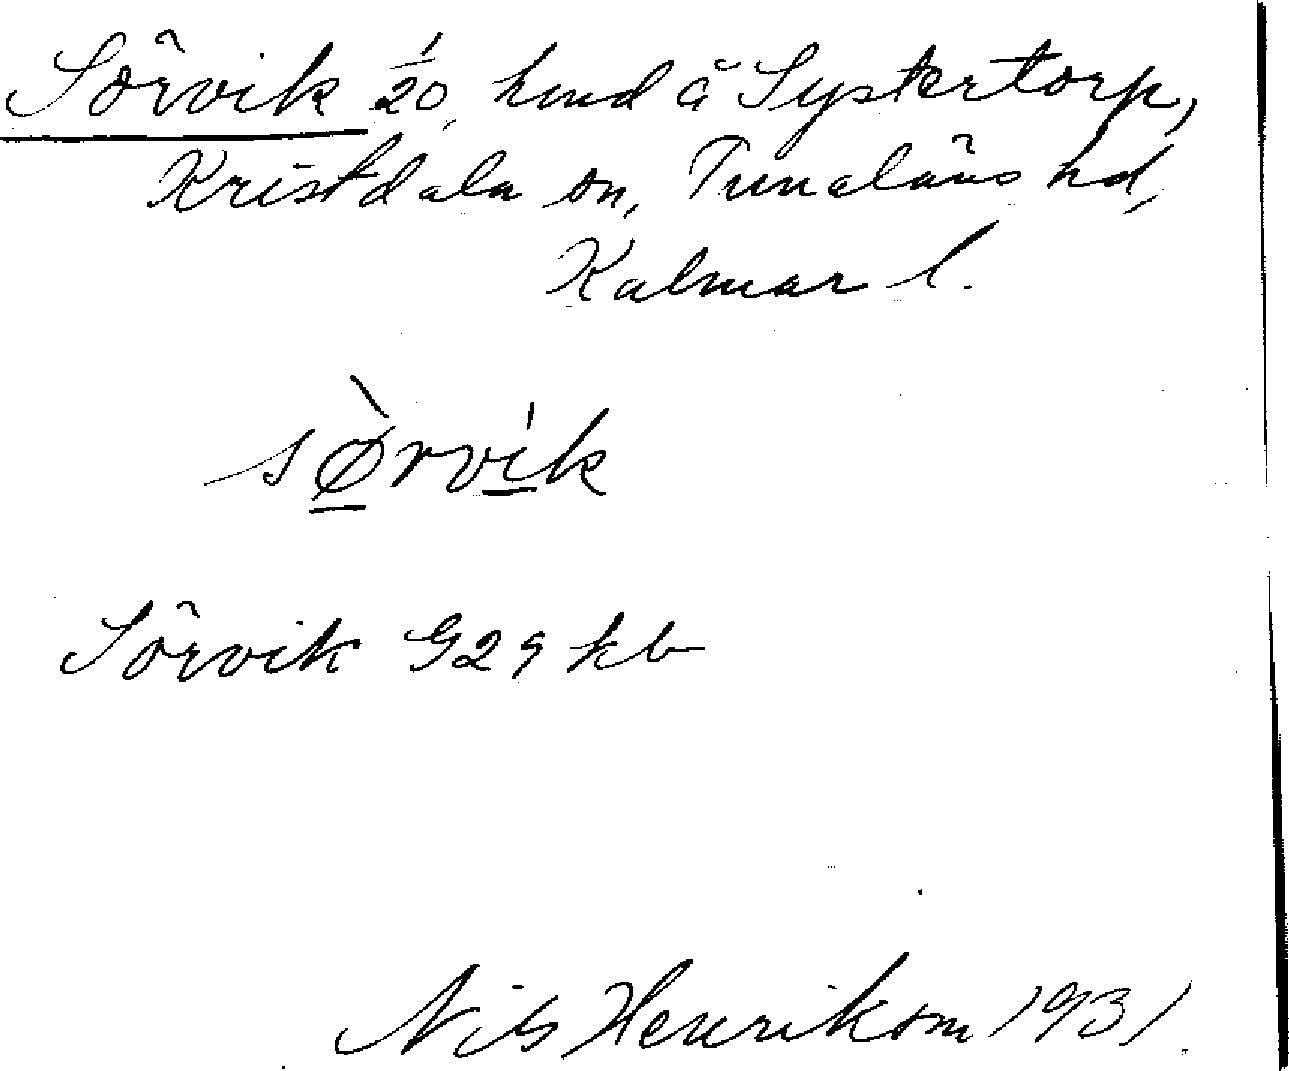 Sörvik 1/20, hmd å Systertorp,
Kristdala sn, Tunaläns hd,
Kalmar l.
sø̀rvík
Sörvik G29 kb
Nils Henrikson 1931.